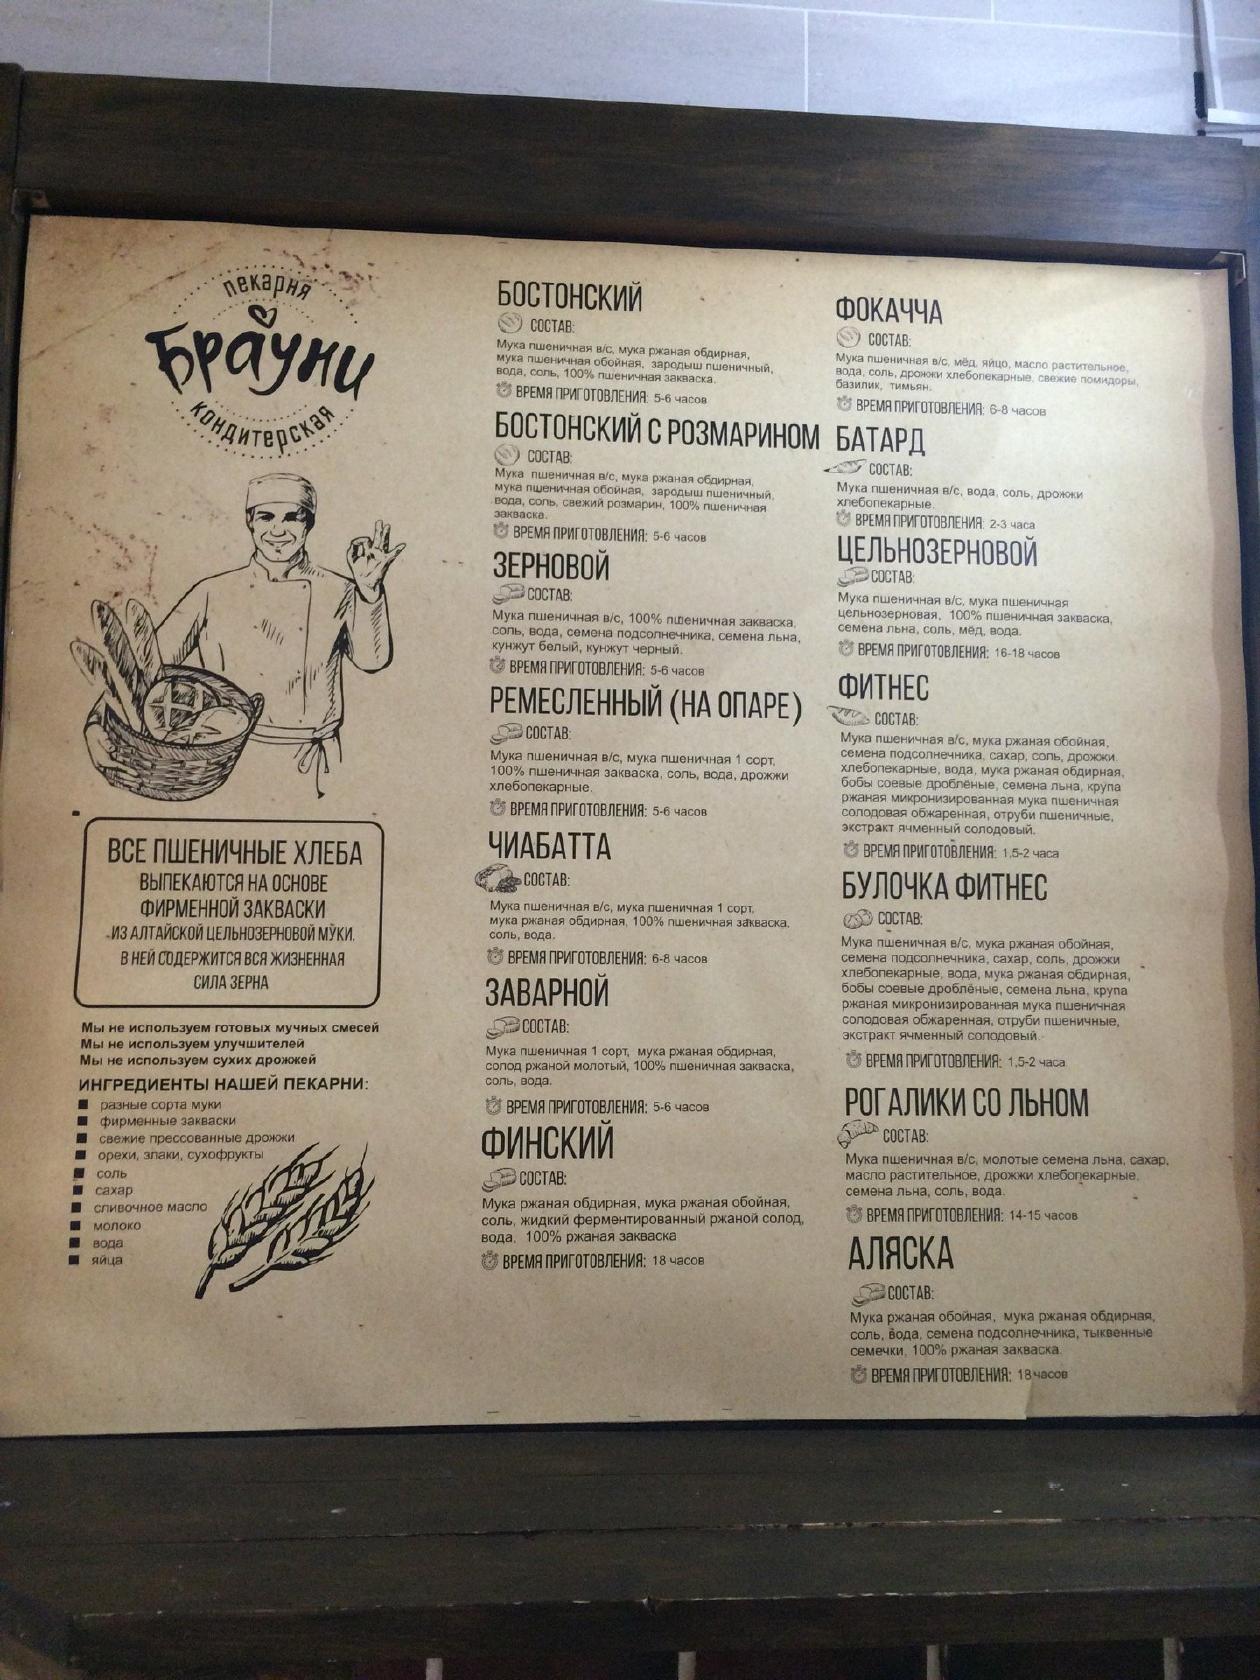 пекарня
Брауни
кондитерская
ВСЕ ПШЕНИЧНЫЕ ХЛЕБА
ВЫПЕКАЮТСЯ НА ОСНОВЕ
ФИРМЕННОЙ ЗАКВАСКИ
ИЗ АЛТАЙСКОЙ ЦЕЛЬНОЗЕРНОВОЙ МУКИ.
В НЕЙ СОДЕРЖИТСЯ ВСЯ ЖИЗНЕННАЯ
СИЛА ЗЕРНА
Мы не используем готовых мучных смесей
Мы не используем улучшителей
Мы не используем сухих дрожжей
ИНГРЕДИЕНТЫ НАШЕЙ ПЕКАРНИ:
разные сорта муки
фирменные закваски
свежие прессованные дрожжи
орехи, злаки, сухофрукты
соль
сахар
сливочное масло
молоко
вода
яйца
БОСТОНСКИЙ
СОСТАВ:
Мука пшеничная в/с, мука ржаная обдирная,
мука пшеничная обойная, зародыш пшеничный,
вода, соль, 100% пшеничная закваска.
ВРЕМЯ ПРИГОТОВЛЕНИЯ: 5-6 часов
БОСТОНСКИЙ С РОЗМАРИНОМ
СОСТАВ:
Мука пшеничная в/с, мука ржаная обдирная,
мука пшеничная обойная, зародыш пшеничный,
вода, соль, свежий розмарин, 100% пшеничная
закваска.
ВРЕМЯ ПРИГОТОВЛЕНИЯ: 5-6 часов
ЗЕРНОВОЙ
СОСТАВ:
Мука пшеничная в/с, 100% пшеничная закваска,
соль, вода, семена подсолнечника, семена льна,
кунжут белый, кунжут черный.
ВРЕМЯ ПРИГОТОВЛЕНИЯ: 5-6 часов
РЕМЕСЛЕННЫЙ (НА ОПАРЕ)
СОСТАВ:
Мука пшеничная в/с, мука пшеничная 1 сорт,
100% пшеничная закваска, соль, вода, дрожжи
хлебопекарные.
ВРЕМЯ ПРИГОТОВЛЕНИЯ: 5-6 часов
ЧИАБАТТА
СОСТАВ:
Мука пшеничная в/с, мука пшеничная 1 сорт,
мука ржаная обдирная, 100% пшеничная закваска,
соль, вода.
ВРЕМЯ ПРИГОТОВЛЕНИЯ: 6-8 часов
ЗАВАРНОЙ
СОСТАВ:
Мука пшеничная 1 сорт, мука ржаная обдирная,
солод ржаной молотый, 100% пшеничная закваска,
соль, вода.
ВРЕМЯ ПРИГОТОВЛЕНИЯ: 5-6 часов
ФИНСКИЙ
СОСТАВ:
Мука ржаная обдирная, мука ржаная обойная,
соль, жидкий ферментированный ржаной солод,
вода, 100% ржаная закваска
ВРЕМЯ ПРИГОТОВЛЕНИЯ: 18 часов
ФОКАЧЧА
СОСТАВ:
Мука пшеничная в/с, мёд, яйцо, масло растительное,
вода, соль, дрожжи хлебопекарные, свежие помидоры,
базилик, тимьян.
ВРЕМЯ ПРИГОТОВЛЕНИЯ: 6-8 часов
БАТАРД
СОСТАВ:
Мука пшеничная в/с, вода, соль, дрожжи
хлебопекарные.
ВРЕМЯ ПРИГОТОВЛЕНИЯ: 2-3 часа
ЦЕЛЬНОЗЕРНОВОЙ
СОСТАВ:
Мука пшеничная в/с, мука пшеничная
цельнозерновая, 100% пшеничная закваска,
семена льна, соль, мёд, вода.
ВРЕМЯ ПРИГОТОВЛЕНИЯ: 16-18 часов
ФИТНЕС
СОСТАВ:
Мука пшеничная в/с, мука ржаная обойная,
семена подсолнечника, сахар, соль, дрожжи
хлебопекарные, вода, мука ржаная обдирная,
бобы соевые дроблёные, семена льна, крупа
ржаная микронизированная мука пшеничная
солодовая обжаренная, отруби пшеничные,
экстракт ячменный солодовый.
ВРЕМЯ ПРИГОТОВЛЕНИЯ: 1,5-2 часа
БУЛОЧКА ФИТНЕС
СОСТАВ:
Мука пшеничная в/с, мука ржаная обойная,
семена подсолнечника, сахар, соль, дрожжи
хлебопекарные, вода, мука ржаная обдирная,
бобы соевые дроблёные, семена льна, крупа
ржаная микронизированная мука пшеничная
солодовая обжаренная, отруби пшеничные,
экстракт ячменный солодовый.
ВРЕМЯ ПРИГОТОВЛЕНИЯ: 1,5-2 часа
РОГАЛИКИ СО ЛЬНОМ
СОСТАВ:
Мука пшеничная в/с, молотые семена льна, сахар,
масло растительное, дрожжи хлебопекарные,
семена льна, соль, вода.
ВРЕМЯ ПРИГОТОВЛЕНИЯ: 14-15 часов
АЛЯСКА
СОСТАВ:
Мука ржаная обойная, мука ржаная обдирная,
соль, вода, семена подсолнечника, тыквенные
семечки, 100% ржаная закваска.
ВРЕМЯ ПРИГОТОВЛЕНИЯ: 18 часов